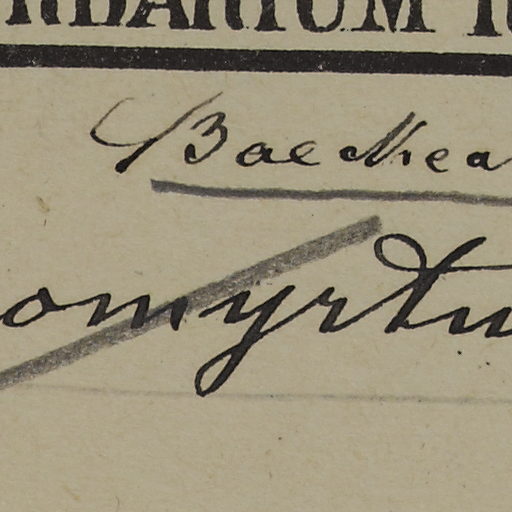 ERBARIUM
Baeckea
omyrtu